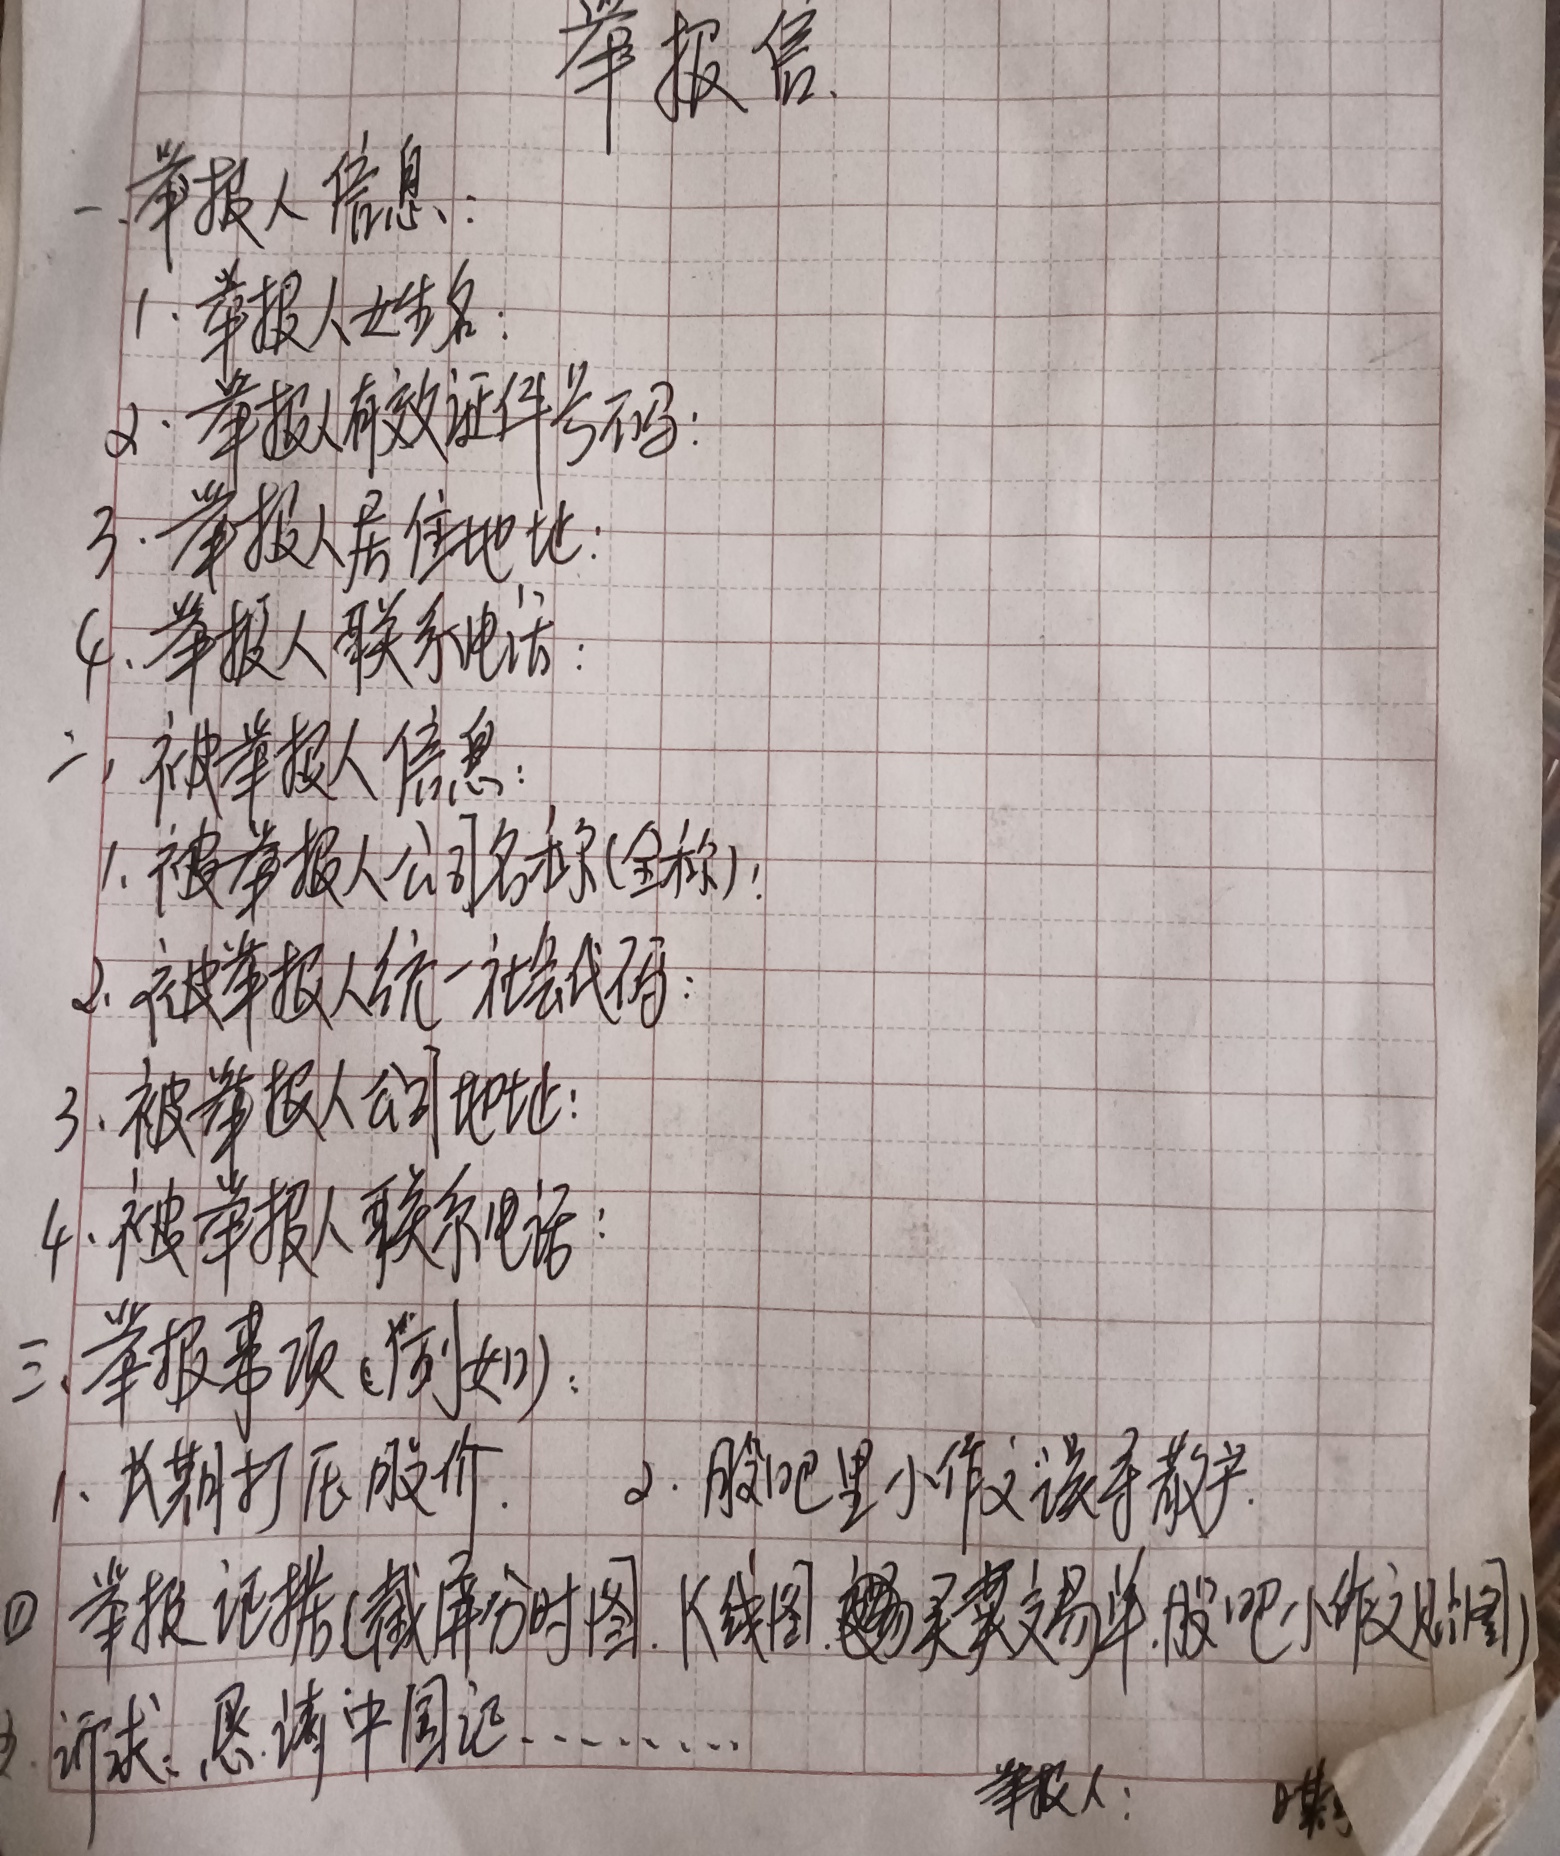 举报信.
一.举报人信息:
1.举报人姓名:
2.举报人有效证件号码:
3.举报人居住地址:
4.举报人联系电话:
二.被举报人信息:
1.被举报人公司名称(全称):
2.被举报人统一社会代码:
3.被举报人公司地址:
4.被举报人联系电话:
三.举报事项(例如):
1.长期打压股价. 2.股吧里小作文误导散户.
四 举报证据(截屏分时图.K线图.买卖交易单.股吧小作文贴图)
诉求:恳请中国证.........
举报人: 日期